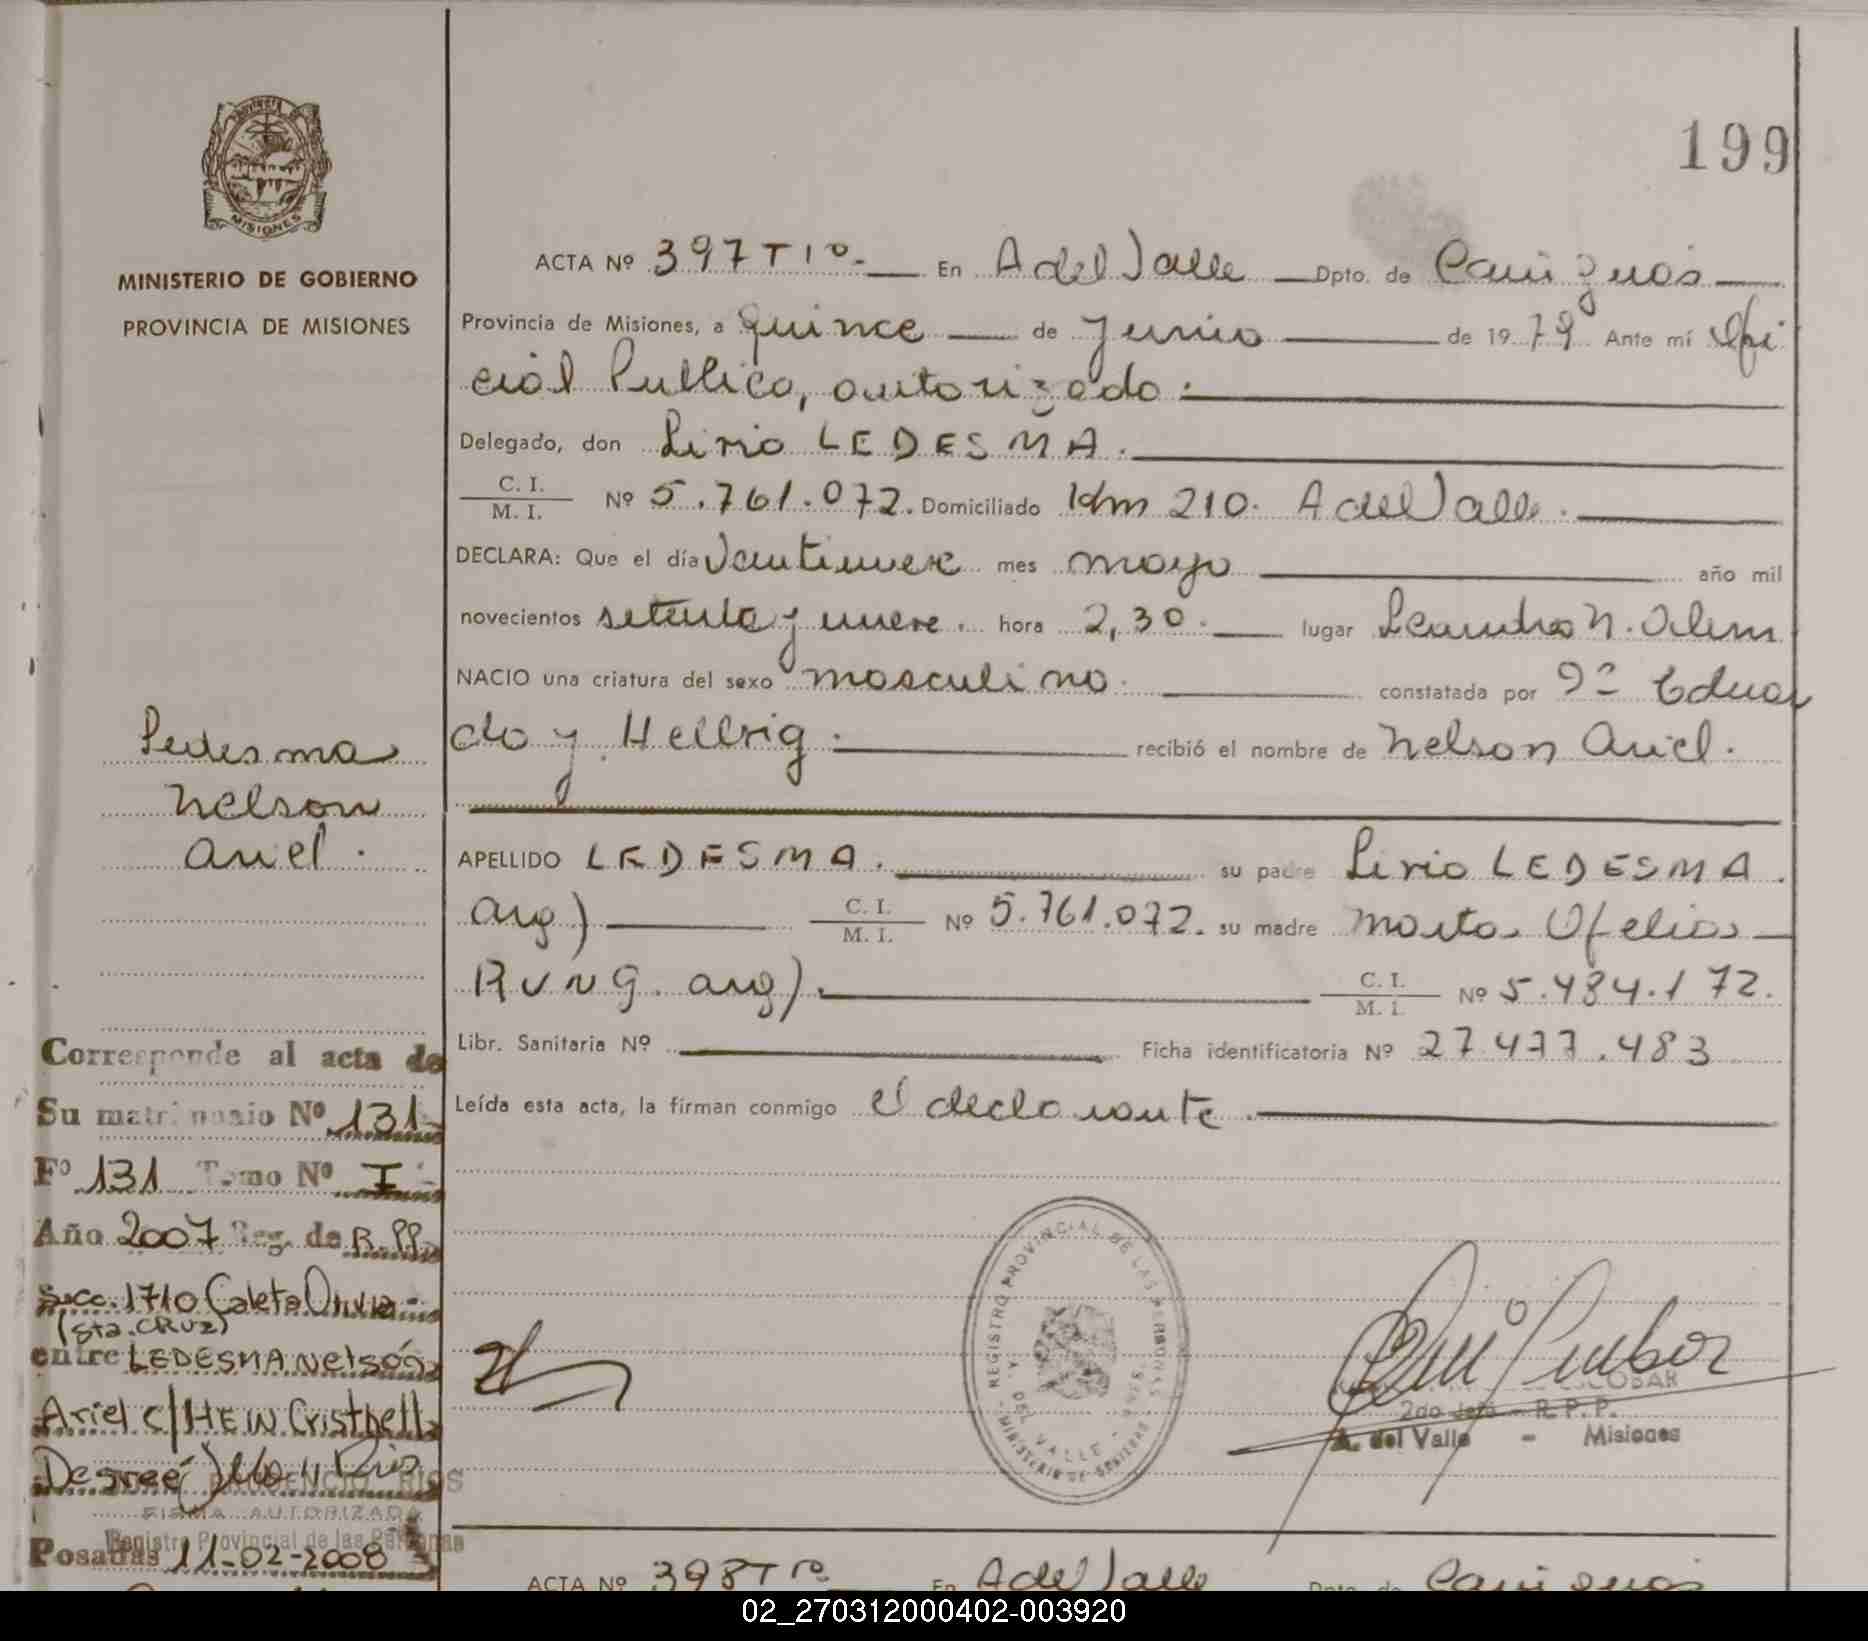 MISIONES
MINISTERIO DE GOBIERNO
PROVINCIA DE MISIONES
199
ACTA Nº 397 T 1º. En A del Valle Dpto. de Cainguás
Provincia de Misiones, a quince de junio de 1979 Ante mí Ofi
cial Publico, autorizado.
Delegado, don Lirio LEDESMA.
C. I.
M. I. Nº 5.761.072. Domiciliado Km 210. A del Valle.
DECLARA: Que el día Veintinueve mes mayo año mil
novecientos setenta y nueve. hora 2,30. lugar Leandro N. Alem
NACIO una criatura del sexo masculino. constatada por Eduar
do y Hellrig. recibió el nombre de Nelson Ariel.
APELLIDO LEDESMA. su padre Lirio LEDESMA.
arg) C. I.
M. I. Nº 5.761.072. su madre Marta Ofelia
RUNG. arg). C. I.
M. I. Nº 5.484.172.
Libr. Sanitaria Nº Ficha identificatoria Nº 27.477.483
Leída esta acta, la firman conmigo el declarante.
Ledesma
Nelson
Ariel.
Corresponde al acta de
Su matrimonio Nº 131
Fº 131 Tomo Nº I
Año 2007 Reg. de R.PP.
Secc. 1710 Caleta Olivia
(Sta. CRUZ)
entre LEDESMA Nelson
Ariel c/ HEIN Cristbell
Desreé
PRUDENCIO RIOS
FIRMA AUTORIZADA
Registro Provincial de las Personas
Posadas 11-02-2008
REGISTRO PROVINCIAL DE LAS PERSONAS
MINISTERIO DE GOBIERNO
DEL VALLE
ESCOBAR
2do Jefe - R. P. P.
A. del Valle - Misiones
ACTA Nº 398 T 1º. En A del Valle Dpto. de Cainguás
02_270312000402-003920